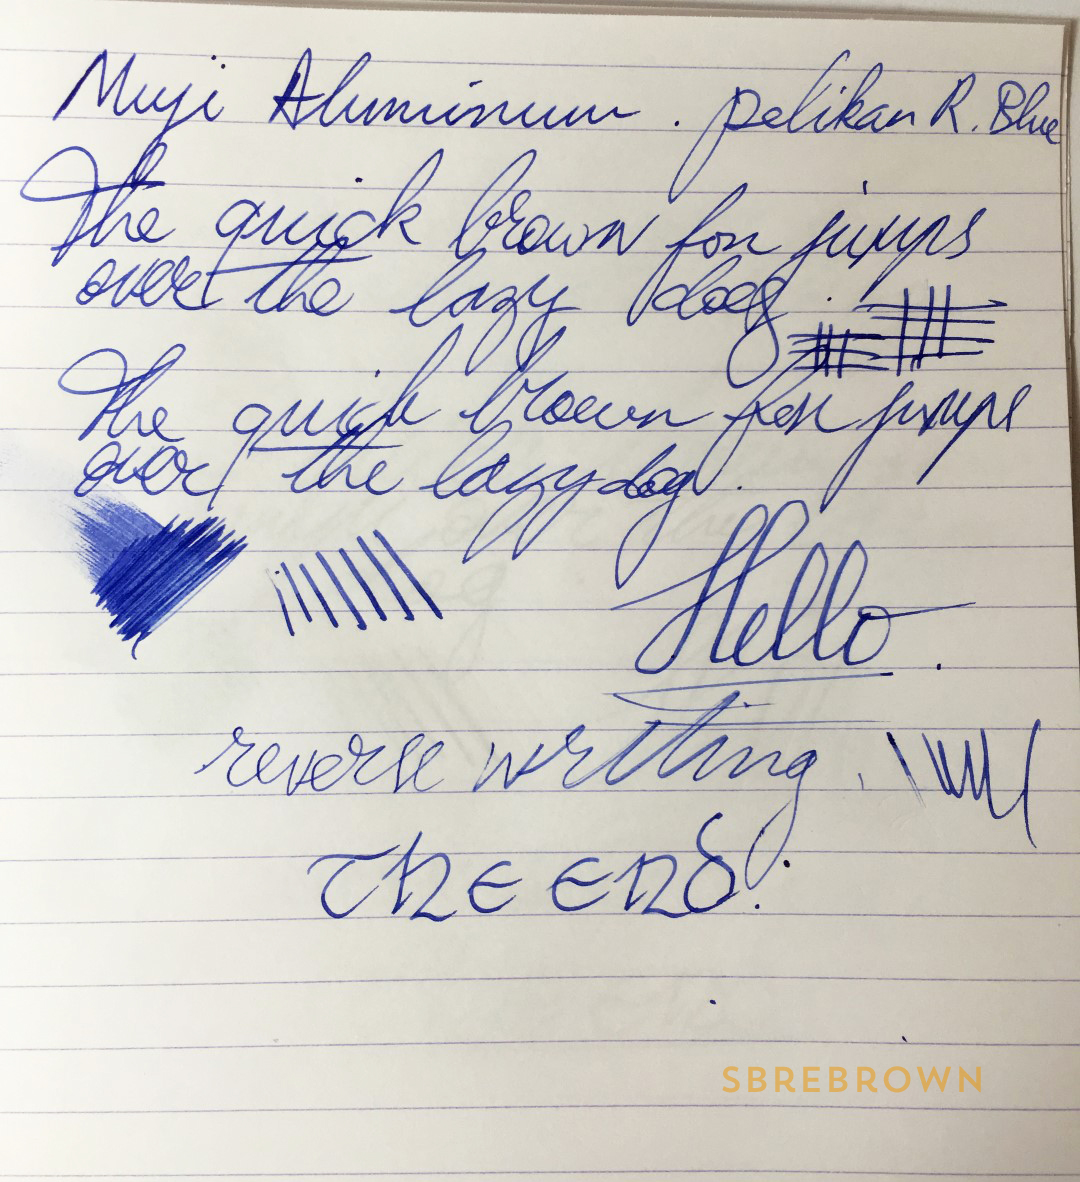 Muji Aluminum. Pelikan R. Blue
The quick brown fox jumps
over the lazy dog.
The quick brown fox jumps
over the lazy dog.
Hello.
reverse writing.
The End.
SBREBROWN